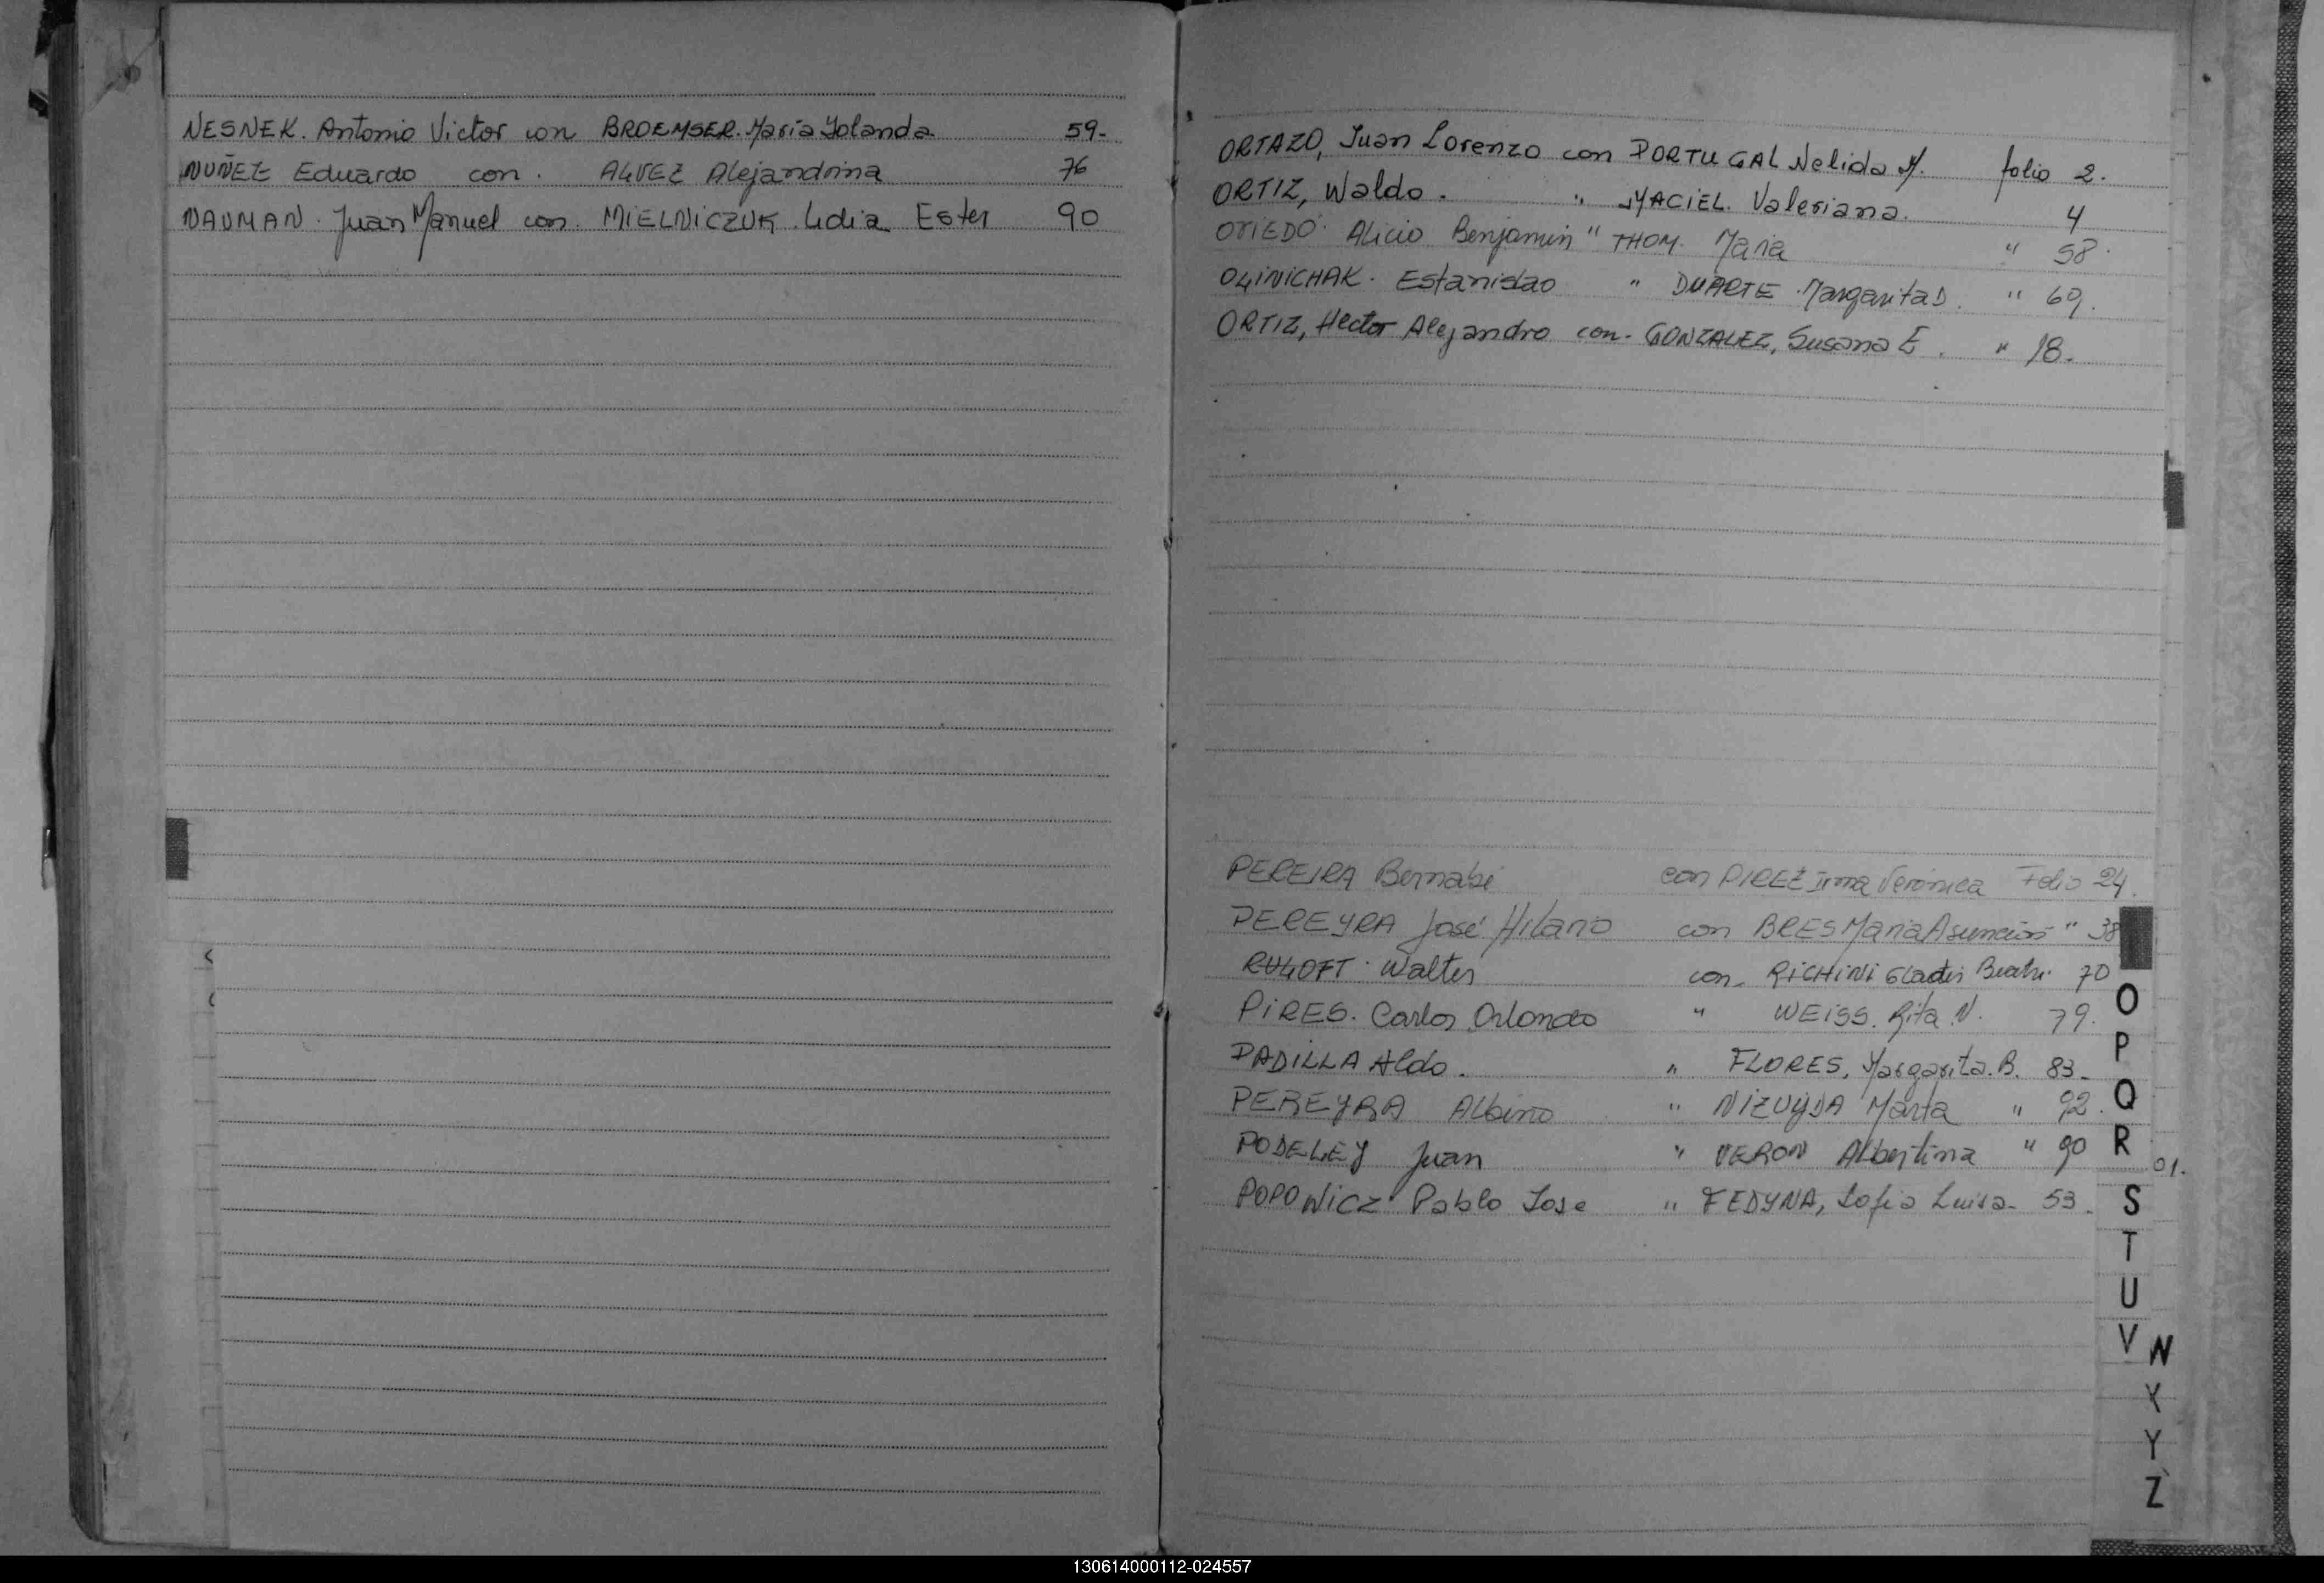 NESNEK. Antonio Victor con BROEMSER. María Yolanda 59-
NUÑEZ Eduardo con. ALVEZ Alejandrina 76
NAUMAN. Juan Manuel con. MIELNICZUK. Lidia Ester 90
ORTAZO, Juan Lorenzo con PORTUGAL Nelida M. folio 2.
ORTIZ, Waldo. " MACIEL. Valeriana. 4
OVIEDO. Alicio Benjamin " THOM. Maria " 58.
OLINICHAK. Estanislao " DUARTE Margarita D. " 69.
ORTIZ, Hector Alejandro con. GONZALEZ, Susana E. " 18.
PEREIRA Bernabé con PIREZ Irma Veronica Folio 24.
PEREYRA José Hilario con BRES Maria Asunción " 38
RULOFT. Walter con. RICHINI Gladis Beatri. 70
PIRES. Carlos Orlando " WEISS. Rita N. 79.
PADILLA Aldo. " FLORES, Margarita. B. 83-
PEREYRA Albino " Marta " 92.
PODELEY Juan " VERON Albertina " 90
01.
POPOWICZ Pablo Jose " FEDYNA, Sofia Luisa- 53.
O
P
Q
R
S
T
U
V W
X
Y
Z
130614000112-024557